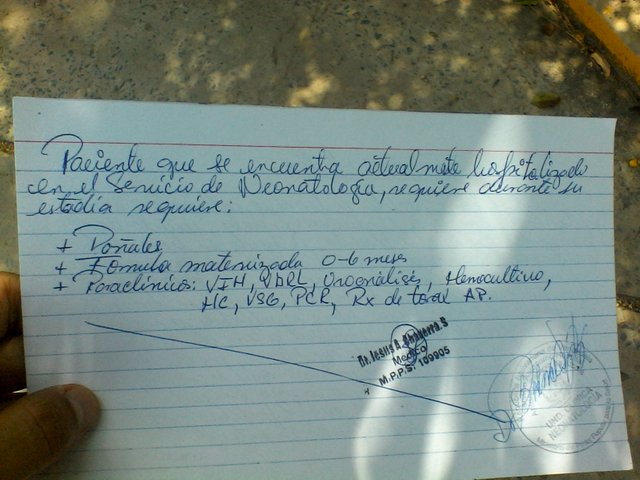 Paciente que se encuentra actualmete hospitalizado
en el Servicio de Neonatología, requiere durante su
estadía requiere:
+ Pañales
+ Fómula maternizada 0-6 meses
+ Paraclínicos: VIH, VDRL, Uroanálisis, Hemocultivo,
HC, VSG, PCR, Rx de torax AP.
Dr. Jesus A. S
Medico
M.P.P.S. 109905
Dr.
NEONATOLOGIA